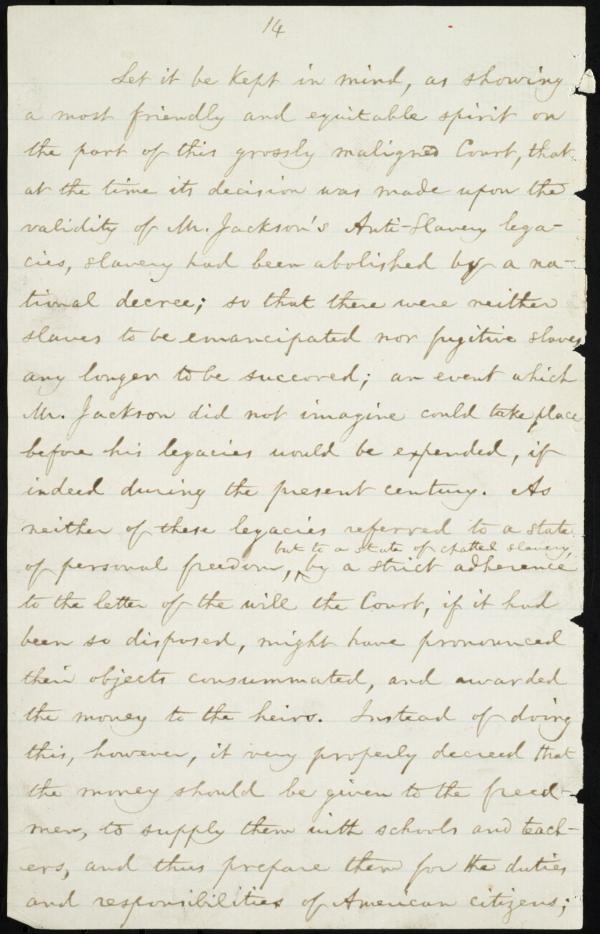 14
Let it be kept in mind, as showing
a most friendly and equitable spirit on
the part of this grossly maligned Court, that
at the time its decision was made upon the
validity of Mr. Jackson's Anti-Slavery lega-
cies, slavery had been abolished by a na-
tional decree; so that there were neither
slaves to be emancipated nor fugitive slaves
any longer to be succored; an event which
Mr. Jackson did not imagine could take place
before his legacies would be expended, if
indeed during the present century. As
neither of these legacies referred to a state
but to a state of chattel slavery,
of personal freedom, by a strict adherence
to the letter of the will the Court, if it had
been so disposed, might have pronounced
their objects consummated, and awarded
the money to the heirs. Instead of doing
this, however, it very properly decreed that
the money should be given to the freed-
men, to supply them with schools and teach-
ers, and thus prepare them for the duties
and responsibilities of American citizens;